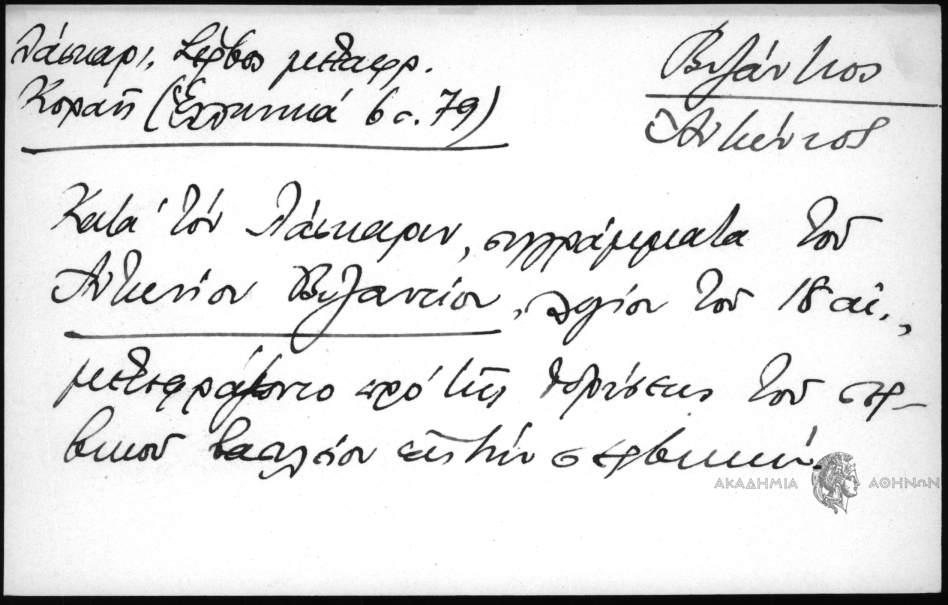 Λάσκαρι, Σέρβος μεταφρ.
Κοραῆ (Ἑλληνικά 6 σ. 79)
Βυζάντιος
Ἀντώνιος
Κατά τόν Λάσκαριν, συγγράμματα τοῦ
Ἀντωνίου Βυζαντίου, λογίου τοῦ 18 αἰ.,
μετεφράζοντο πρό τῆς ἱδρύσεως τοῦ σερ-
βικοῦ βασιλείου εἰς τήν σερβικήν.
ΑΚΑΔΗΜΙΑ ΑΘΗΝΩΝ